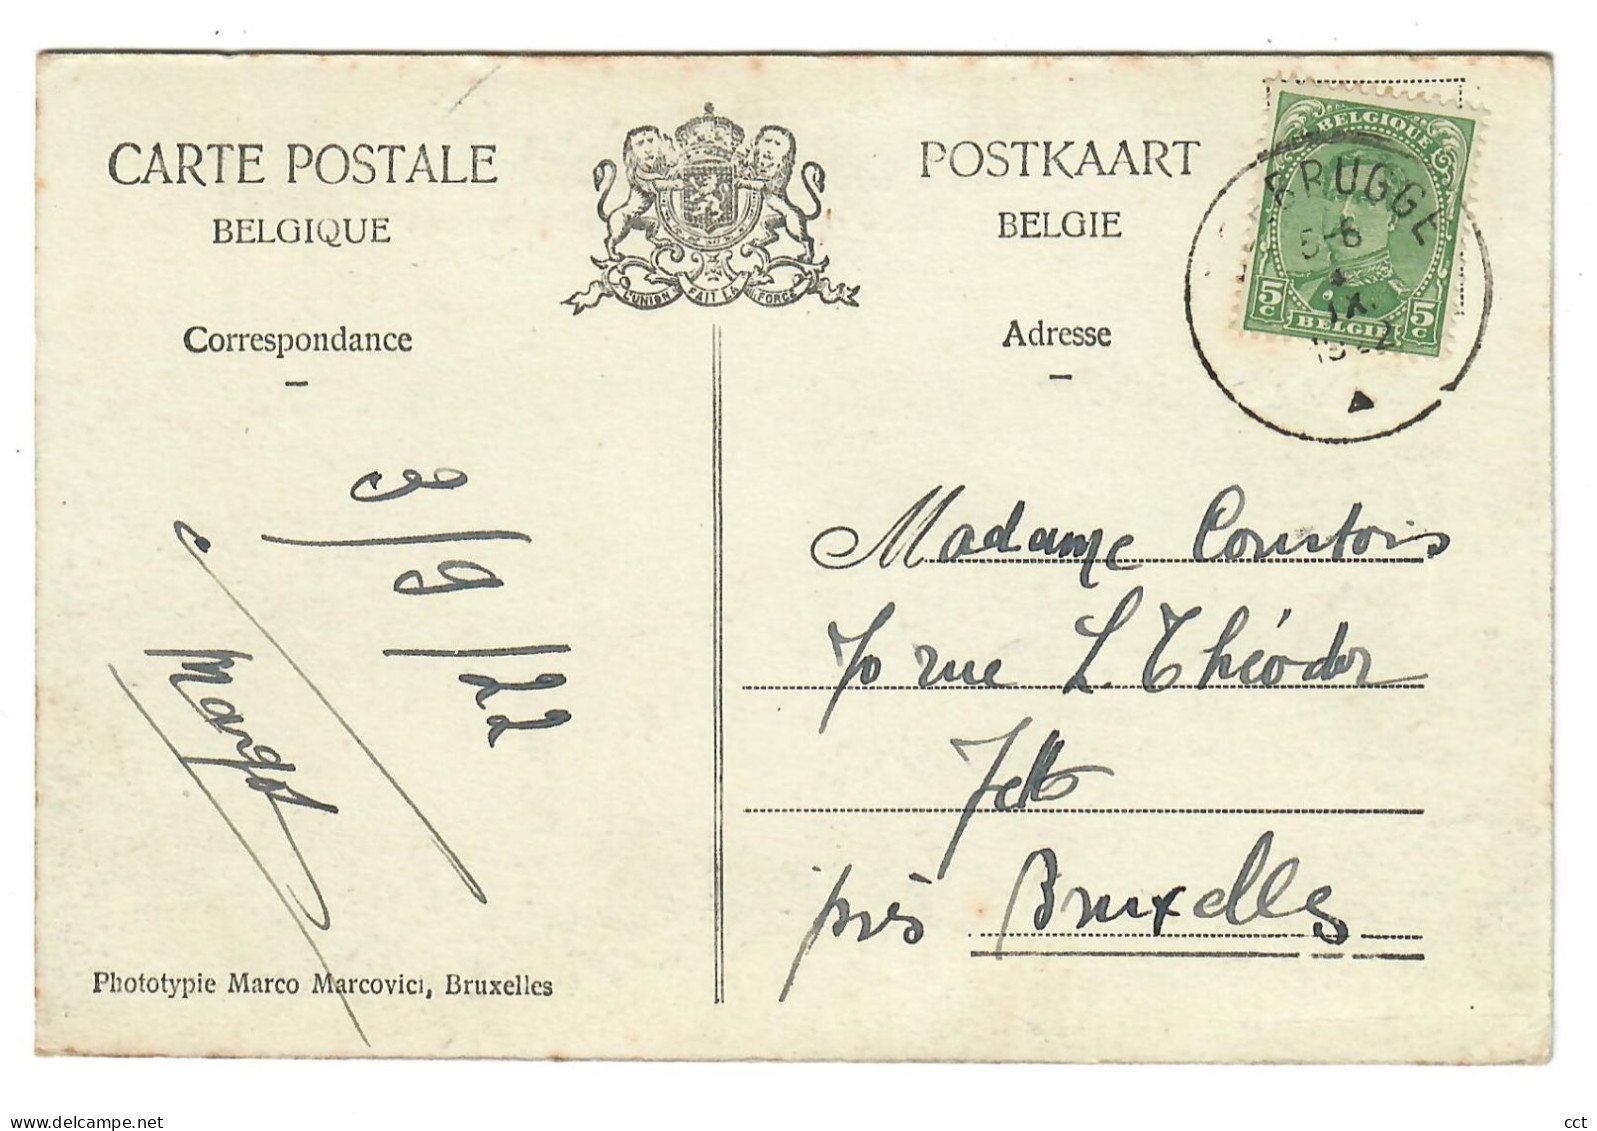 CARTE POSTALE
BELGIQUE
Correspondance
3/9/22
Margot
Phototypie Marco Marcovici, Bruxelles
L'UNION FAIT LA FORCE
POSTKAART
BELGIE
Adresse
BELGIQUE
5c 5c
BELGIË
BRUGGE
5-6
IX
Madame Courtois
70 rue L. Théodor
Jette
près Bruxelles
www.delcampe.net
cct